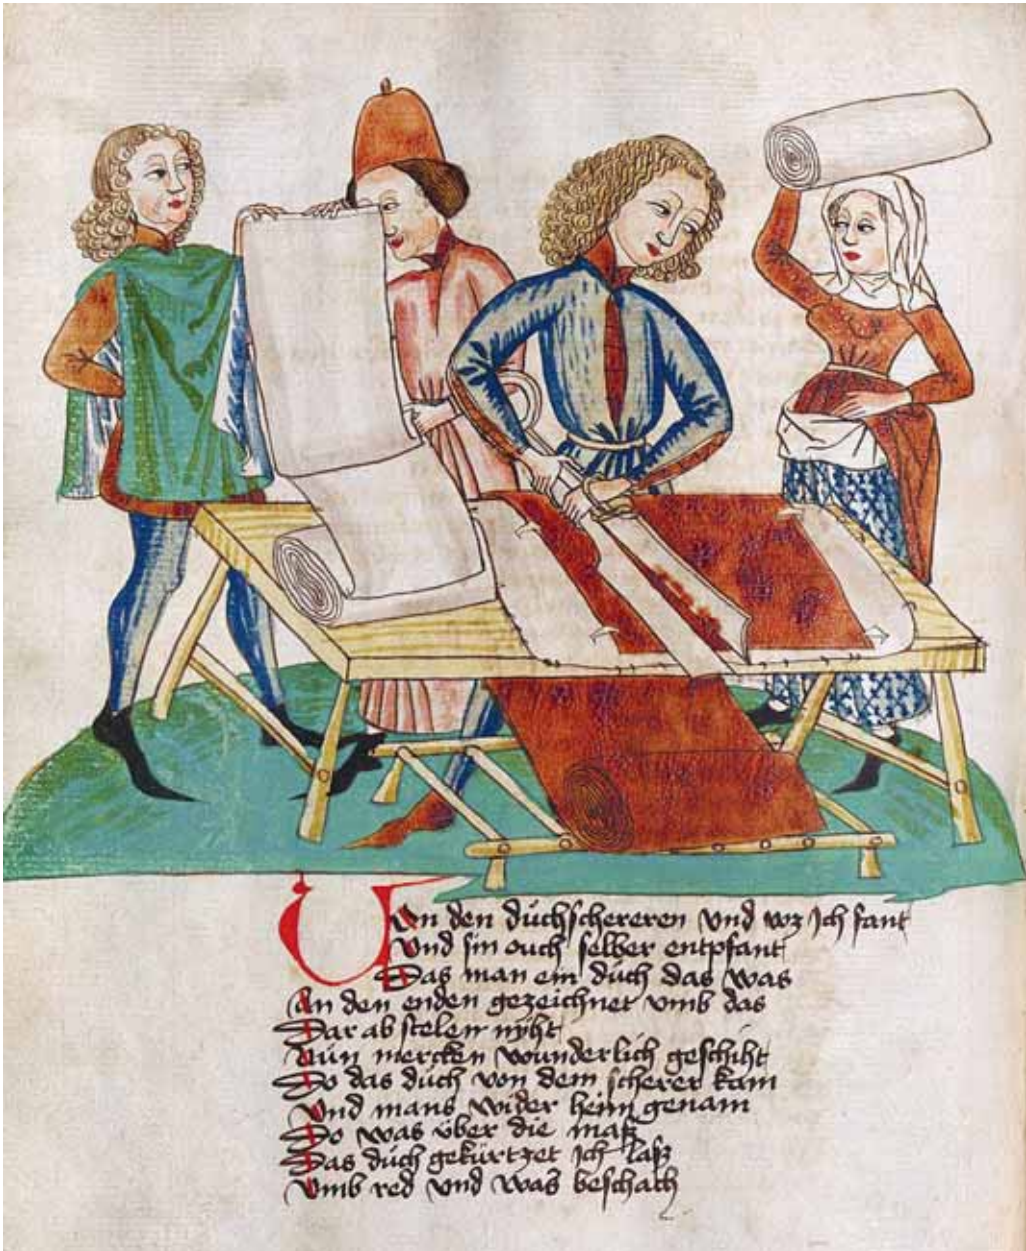 Von den düchschereren vnd wz Jch fant
Vnd sin ouch selber entpfant
Das man ein düch das was
An den enden gezeichnet vmb das
Dar ab stelen nyht
Nün mercken wunderlich geschiht
Do das düch von dem scherer kam
Vnd mans wider heim genam
Do was über die maß
Das düch gekürtzet Jch laß
Vmb red vnd was beschach